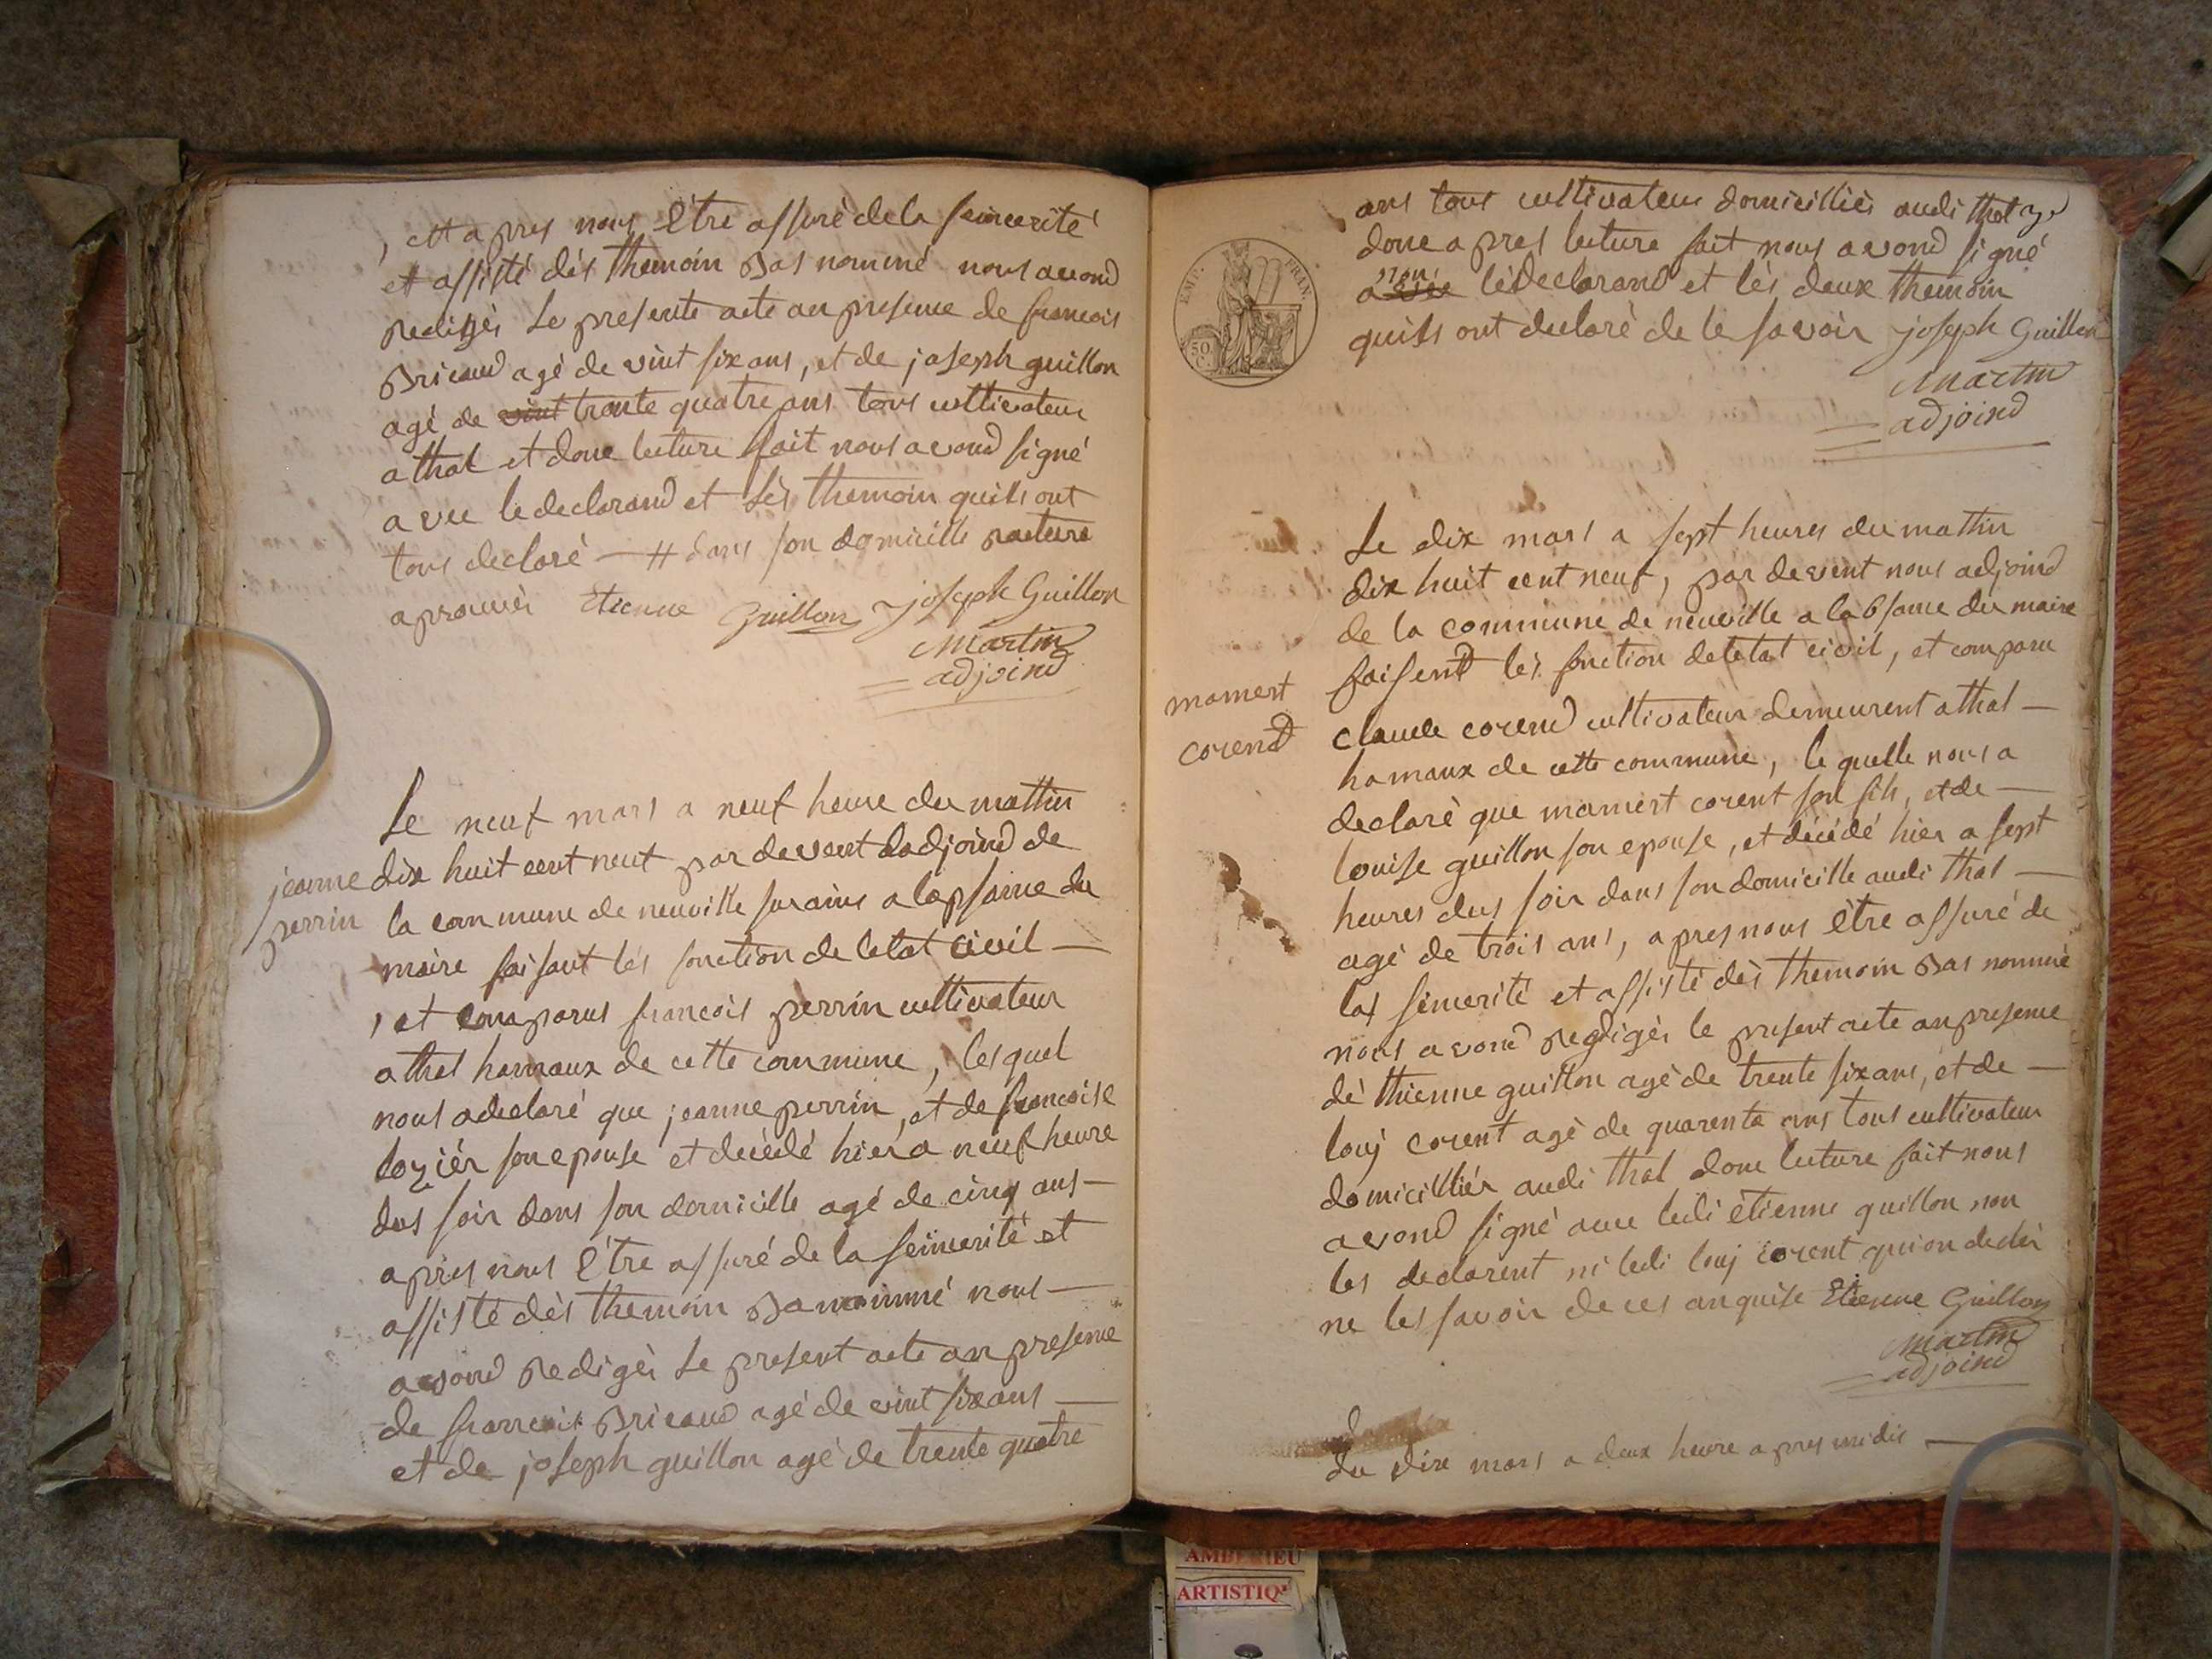 , et apres nous être assuré dela seincerité
et assisté dés themoin bas nommé nous avond
redigés Le presente acte an presence de francois
Bricaud agé de vint six ans, et de joseph guillon
agé de vint trante quatre ans tous cultivateur
a thol et done lecture fait nous avond signé
avec le declarand et lés themoin quils ont
tous declaré — # dans son domicille rature
aprouvés Etienne Guillon joseph Guillon
Martin
adjoind
Le neuf mars a neuf heure du mattin
jeanne
perrin
dix huit cent neuf par devent ladjoind de
la commune de neuville sur ains a lapsance du
maire faisant lés fonction de letat civil —
, et comparus francois perrin cultivateur
a thol hamaux de cette commune, lesquel
nous a declaré que jeanne perrin, et de francoise
lozier son epouse et décédé hier a neuf heure
dus soir dans son domicille agé de cinq ans —
apres nous être assuré de la seincerité et
assisté dés themoin ba nommé nous —
avond redigés Le present acte an presence
de francois Bricaud agé de vint six ans —
et de joseph guillon agé de trente quatre
ans tous cultivateur domicilliés audi thol
done apres lecture fait nous avond signé
EMP. FRAN.
50 C
non
avec lé declarand et lés deux themoin
quils ont declaré de le savoir joseph Guillon
Martin
adjoind
Le dix mars a sept heures du mattin
dix huit cent neuf, par devent nous adjoind
de la commune de neuville a labsance du maire
faisend lés fonction de letat civil, et comparu
mamert
corend
claude corend cultivateur demeurent a thol —
hamaux de cette commune, le quelle nous a
declaré que mamert corent son fils, et de —
louise guillon son epouse, et décédé hier a sept
heures dus soir dans son domicille audi thol —
agé de trois ans, apres nous être assuré de
las sincerité et assisté dés themoin bas nommé
nous avond regdigés le present acte an presence
dé thienne guillon agé de trente six ans, et de —
louj corent agé de quarente ans tous cultivateur
domicilliér audi thol done lecture fait nous
avond signé avec ledi étienne guillon non
les declarent ni ledi louj corent qui on declér
ne les savoir de ces anquise Etienne Guillon
Martin
adjoind
du dix mars a deux heure apres midis —
AMBERIEU
ARTISTIQ